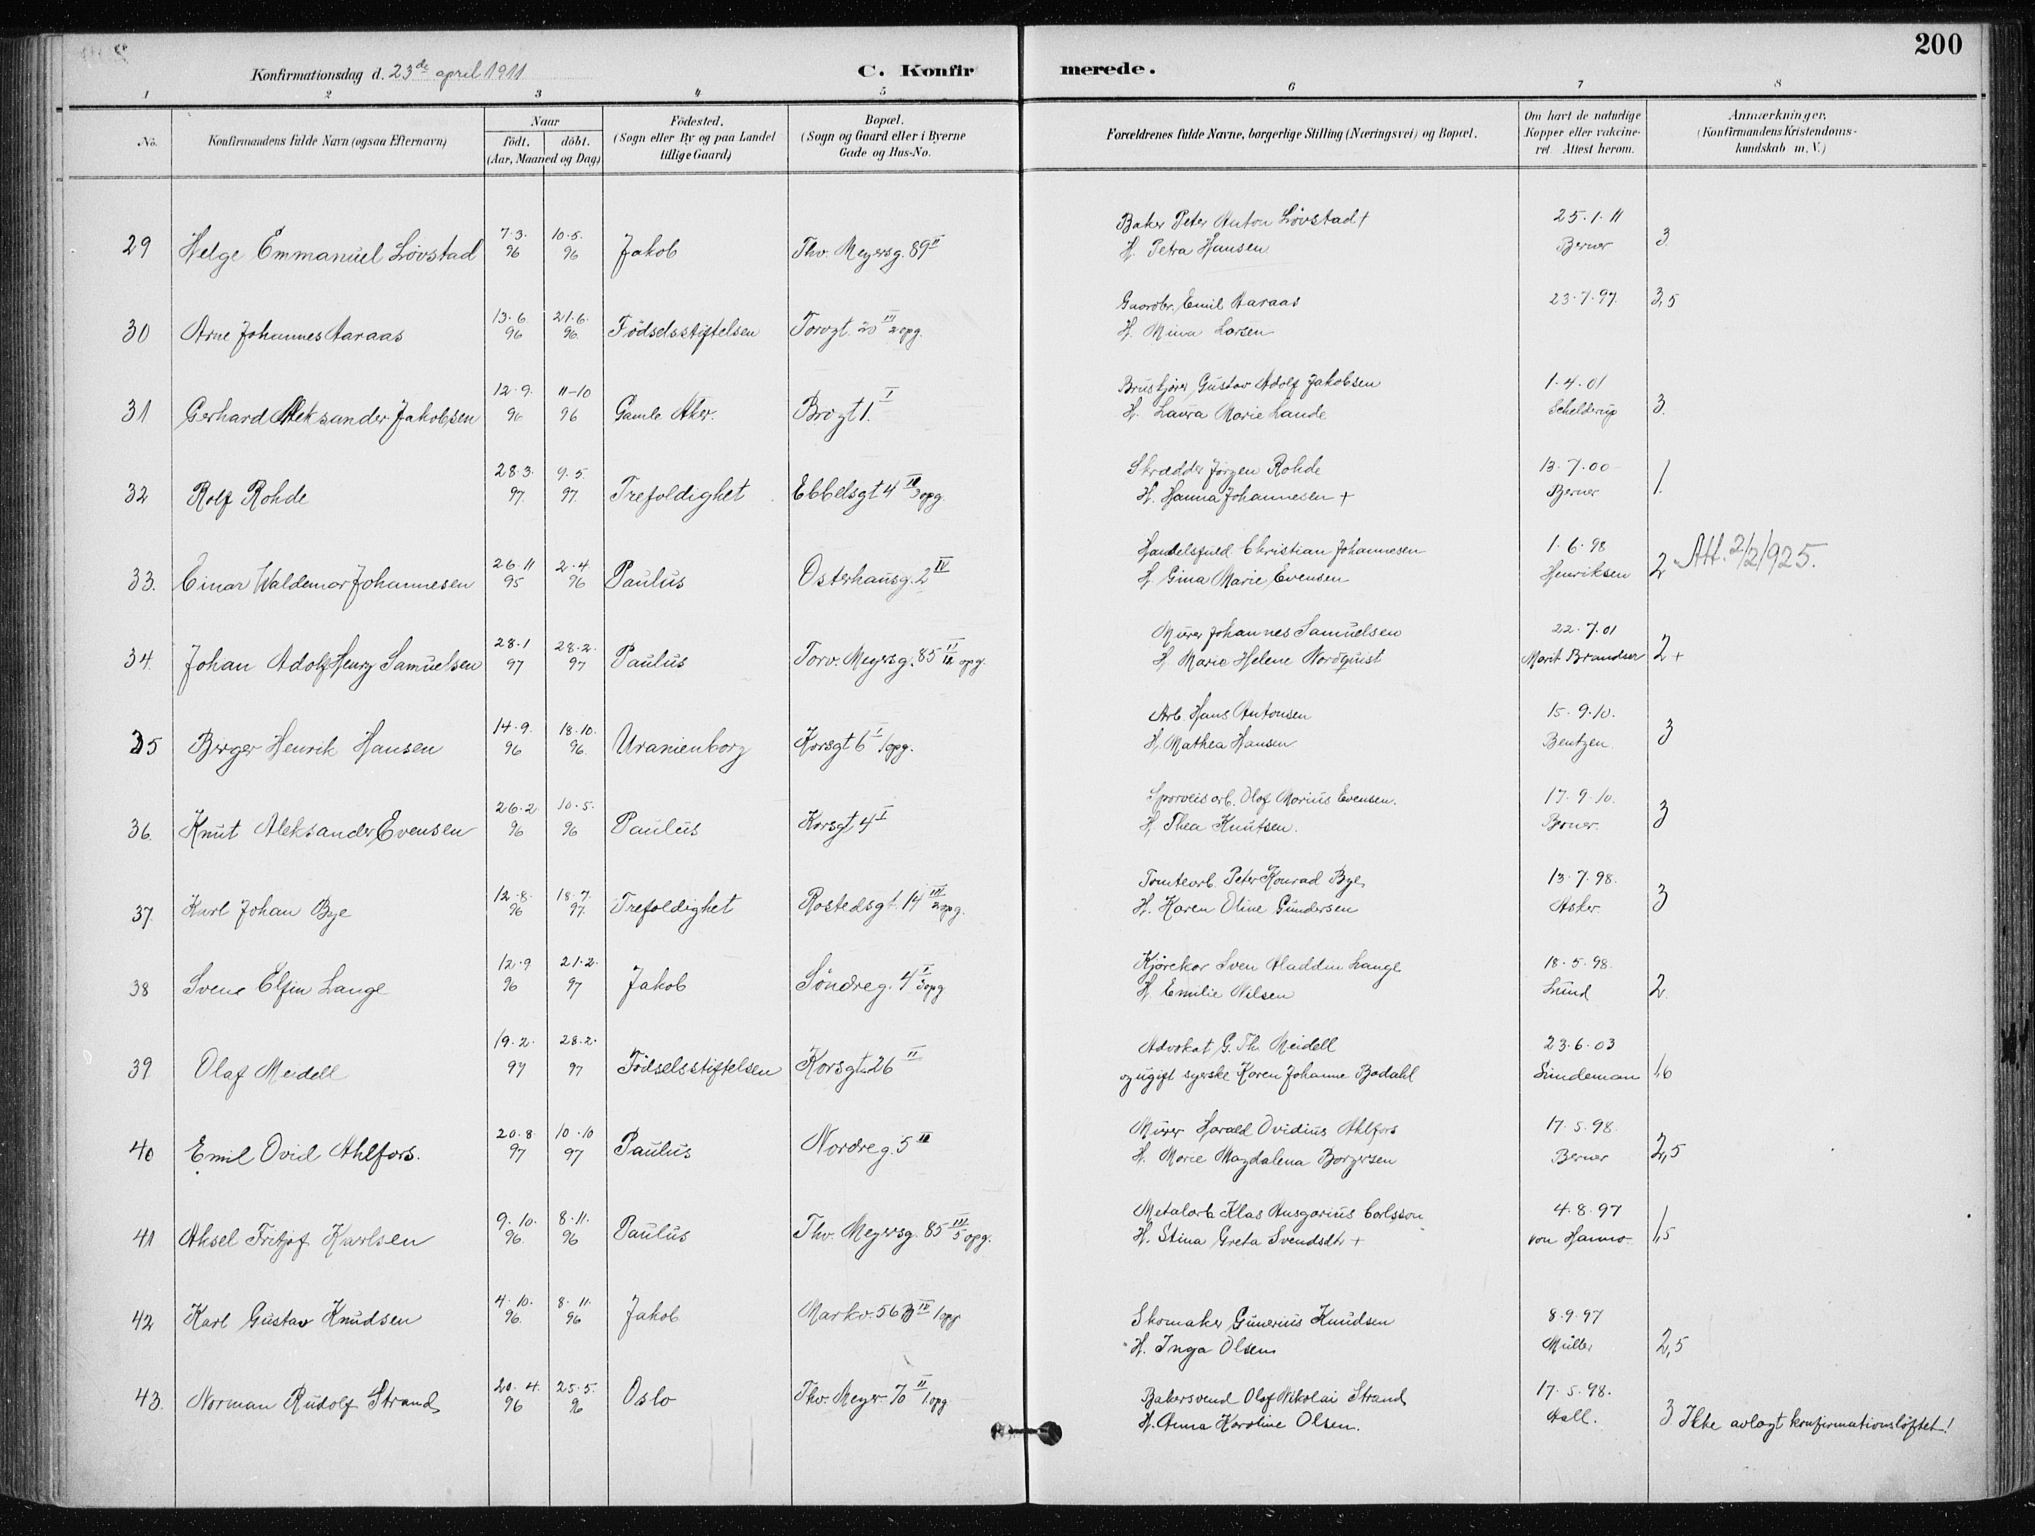 200
Konfirmationsdag d. 23de april 1911
C. Konfirmerede.
1 2 3 4 5 6 7 8
No. Konfirmandens fulde Navn (ogsaa Efternavn) Naar født. døbt. (Aar, Maaned og Dag) Fødested. (Sogn eller By og paa Landet tillige Gaard) Bopæl. (Sogn og Gaard eller i Byerne Gade og Hus-No. Forældrenes fulde Navne, borgerlige Stilling (Næringsvei) og Bopæl. Om havt de naturlige Kopper eller vakcineret. Attest herom. Anmærkninger. (Konfirmandens Kristendomskundskab m. V.)
7.3. 10.5. Baker Peter Anton Løvstad + 25.1.11
29 Helge Emmanuel Løvstad 96 96 Jakob Thv. Meyersg. 89 II H. Petra Hansen Berner 3
13.6 21.6. Gaardbr. Emil Aaraas 23.7.97 3,5
30 Arne Johannes Aaraas 96 96. Fødselsstiftelsen Torvgt. 20 III 2 opg. H. Mina Larsen
12.9. 11-10 Gustav Adolf Jakobsen 1.4.01
31 Gerhard Aleksander Jakobsen 96 96 Gamle Aker. Brogt 1. I H. Laura Marie Lande Schelderup 3.
28.3. 9.5. Skrædder Jørgen Rohde 13.7.00
32 Rolf Rohde 97. 97. Trefoldighet Ebbelsgt 4 IV 3 opg H. Hanna Johannesen + Berner 1.
26.11 2.4. Handelsfuld. Christian Johannesen 1.6.98
33. Einar Waldemar Johannesen 95 96 Paulus Osterhausg. 2 IV H. Gina Marie Evensen Henriksen 2 Att. 2/2 1925.
28.1 28.2. Murer Johannes Samuelsen 22.7.01
34. Johan Adolf Henry Samuelsen 97 97 Paulus Torv. Meyersg. 85 II opg. H. Marie Helene Nordquist Marit 2+
14.9. 18.10. Arb. Hans Antonsen 15.9.10.
35 Birger Henrik Hansen 96 96. Uranienborg Korsgt 6 I 1 opg. H. Mathea Hansen Bentzen. 3
26.2. 10.5. Sporveisarb. Olaf Marius Evensen. 17.9.10.
36. Knut Aleksander Evensen 96 96 Paulus Korsgt 4 I H Thea Knutsen. Berner. 3
12.8. 18.7. Tomtearb. Peter Konrad Bye 13.7.98.
37. Karl Johan Bye 96 97. Trefoldighet Rostedsgt. 14 III 2 opg. H. Karen Oline Gundersen Asker. 3
12.9 21.2. Kjørekar Sven Aladdin Lange 18.5.98.
38 Svene Elfin Lange 96 97 Jakob Søndreg. 4 I 3 opg H Emilie Nilsen Lund 2.
19.2. 28.2. Advokat G. Th. Meidell 23.6.03
39 Olaf Meidell 97 97 Fødselsstiftelsen Korsgt. 26 II og ugift syerske Karen Johanne Bodahl Lindeman 1,6
20.8 10.10 Murer Harald Ovidius Ahlfors 17.5.98.
40 Emil Ovid Ahlfors. 97 97 Paulus Nordreg. 5 H. Marie Magdalena Borgersen Berner 2,5
9.10. 8.11. Metalarb Klas Ansgarius Carlsson 4.8.97
41 Aksel Fritjof Karlsen 96 96 Paulus Thv. Meyersg. 85 III 5 opg. H. Stina Greta Svendsdtr + von Hanno. 1,5
4.10. 8.11. Skomaker Gunerius Knudsen 8.9.97
42 Karl Gustav Knudsen 96. 96 Jakob Markv. 56 B IV 1 opg H. Inga Olsen Müller 2,5
20.4. 25.5. Bakersvend Olaf Nikolai Strand 17.5.98.
43. Norman Rudolf Strand 96 96 Oslo Thv. Meyer 70 II 1 opg H. Anna Karoline Olsen. Aall. 3 Ikke avlagt konfirmationsløftet!